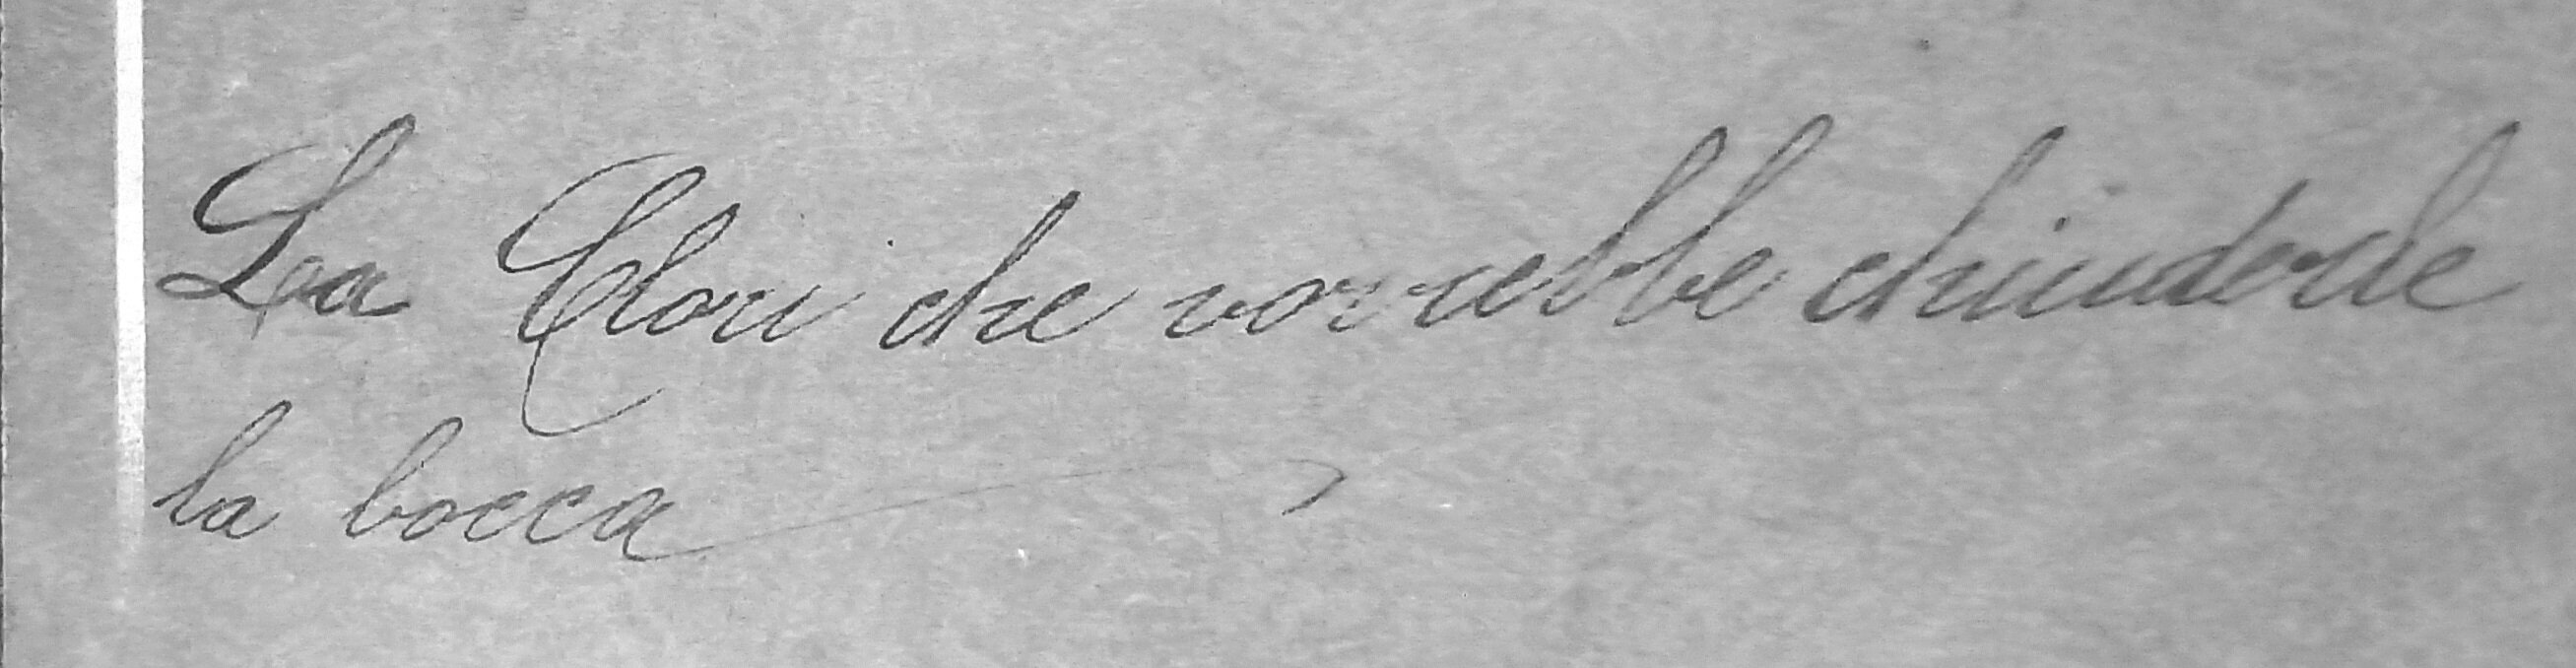 La Clori che vorrebbe chiuderle
la bocca